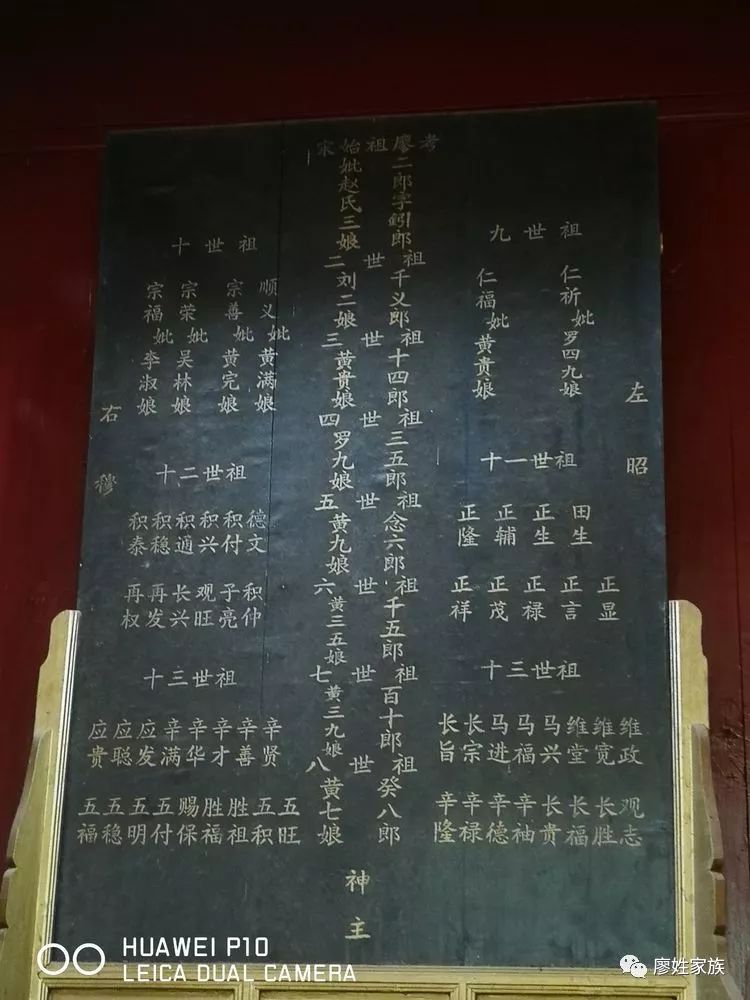 宋始祖廖考
二郎字鈏郎
妣赵氏三娘
二世祖
千义郎
刘二娘
三世祖
十四郎
黄贵娘
四世祖
三五郎
罗九娘
五世祖
念六郎
黄九娘
六世祖
千五郎
黄三五娘
七世祖
百十郎
黄三九娘
八世祖
癸八郎
黄七娘
神主
左昭
九世祖
仁祈妣罗四九娘
仁福妣黄贵娘
十一世祖
田生
正生
正辅
正隆
正显
正言
正禄
正茂
正祥
十三世祖
维政
维宽
维堂
马兴
马福
马进
长宗
长旨
观志
长胜
长福
长贵
辛袖
辛德
辛禄
辛隆
右穆
十世祖
顺义妣黄满娘
宗善妣黄完娘
宗荣妣吴林娘
宗福妣李淑娘
十二世祖
德文
积付
积兴
积通
积稳
积泰
积仲
子亮
观旺
长兴
再发
再权
十三世祖
辛贤
辛善
辛才
辛华
辛满
应发
应聪
应贵
五旺
五积
胜祖
胜福
赐保
五付
五明
五稳
五福
HUAWEI P10
LEICA DUAL CAMERA
廖姓家族